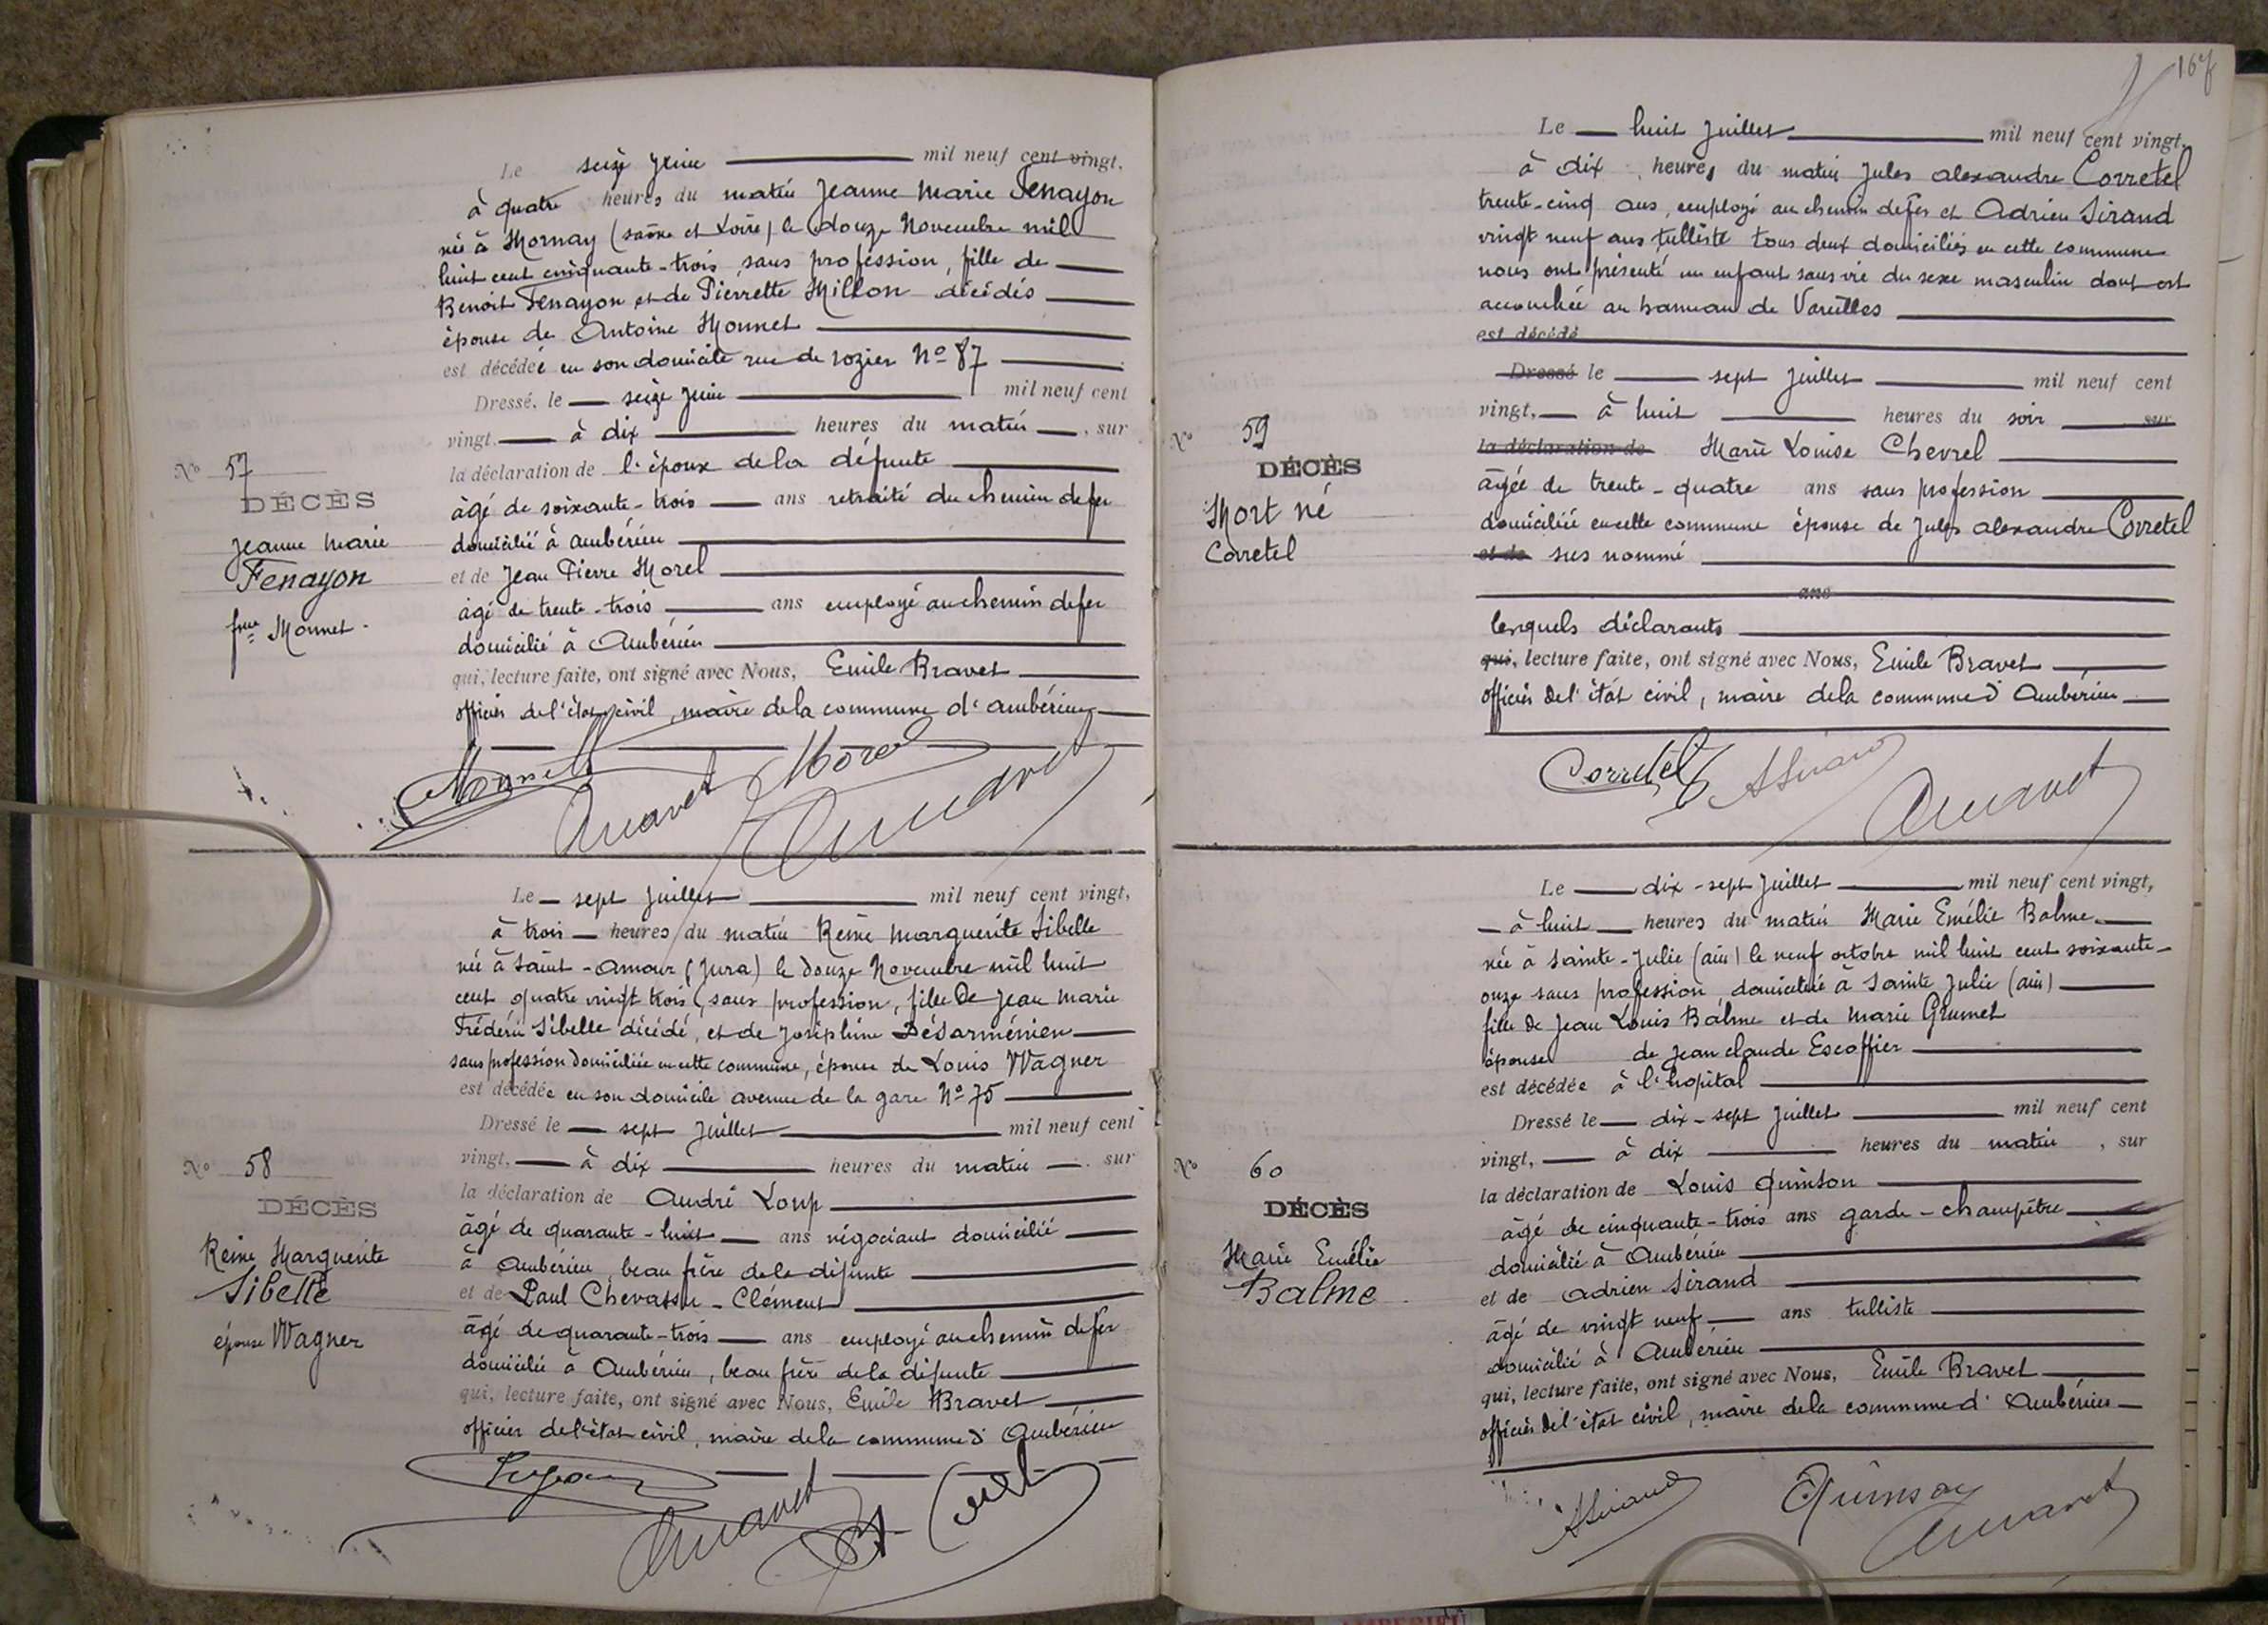 Le seize juin mil neuf cent vingt,
à quatre heures du matin Jeanne Marie Fenayon
née à Mornay (saône et Loire) le douze Novembre mil
huit cent cinquante-trois, sans profession, fille de
Benoit Fenayon et de Pierrette Millon décédés
épouse de Antoine Monnet
est décédée en son domicile rue de rozier No 87
Dressé, le seize juin mil neuf cent
vingt, à dix heures du matin, sur
la déclaration de l'époux de la défunte
âgé de soixante-trois ans retraité du chemin de fer
domicilié à Ambérieu
et de Jean Pierre Morel
âgé de trente-trois ans employé au chemin de fer
domicilié à Ambérieu
qui, lecture faite, ont signé avec Nous, Emile Bravet
officier de l'état civil, maire de la commune d'Ambérieu
No 57
DÉCÈS
Jeanne Marie
Fenayon
fme Monnet.
Monnet Morel
Le sept Juillet mil neuf cent vingt,
à trois heures du matin Reine Marguerite Sibelle
née à Saint-Amour (Jura) le douze Novembre mil huit
cent quatre vingt trois, sans profession, fille de Jean Marie
Frédéric Sibelle décédé, et de Joséphine Désarménien
sans profession domiciliée en cette commune, épouse de Louis Wagner
est décédée en son domicile avenue de la gare No 75
Dressé le sept Juillet mil neuf cent
vingt, à dix heures du matin, sur
la déclaration de André Loup
âgé de quarante-huit ans négociant domicilié
à Ambérieu, beau frère de la défunte
et de Paul Chevassu-Clément
âgé de quarante-trois ans employé au chemin de fer
domicilié à Ambérieu, beau frère de la défunte
qui, lecture faite, ont signé avec Nous, Emile Bravet
officier de l'état civil, maire de la commune d'Ambérieu
No 58
DÉCÈS
Reine Marguerite
Sibelle
épouse Wagner
167
Le huit Juillet mil neuf cent vingt,
à dix heures du matin Jules alexandre Corretel
trente-cinq ans, employé au chemin de fer et Adrien Sirand
vingt neuf ans tulliste tous deux domiciliés en cette commune
nous ont présenté un enfant sans vie du sexe masculin dont est
accouchée au hameau de Vareilles
est décédé
Dressé le sept Juillet mil neuf cent
vingt, à huit heures du soir sur
la déclaration de Marie Louise Chevrel
âgée de trente-quatre ans sans profession
domiciliée en cette commune épouse de Jules alexandre Corretel
et de sus nommé
ans
lesquels déclarants
qui, lecture faite, ont signé avec Nous, Emile Bravet
officier de l'état civil, maire de la commune d'Ambérieu
No 59
DÉCÈS
Mort né
Corretel
Corretel ASirand
Le dix-sept Juillet mil neuf cent vingt,
à huit heures du matin Marie Emélie Balme
née à Sainte-Julie (ain) le neuf octobre mil huit cent soixante-
onze sans profession, domiciliée à Sainte Julie (ain)
fille de Jean Louis Balme et de Marie Grumet
épouse de Jean claude Escoffier
est décédée à l'hopital
Dressé le dix-sept Juillet mil neuf cent
vingt, à dix heures du matin, sur
la déclaration de Louis Quinson
âgé de cinquante-trois ans garde-champêtre
domicilié à Ambérieu
et de Adrien Sirand
âgé de vingt neuf ans tulliste
domicilié à Ambérieu
qui, lecture faite, ont signé avec Nous, Emile Bravet
officier de l'état civil, maire de la commune d'Ambérieu
No 60
DÉCÈS
Marie Emélie
Balme
ASirand Quinson